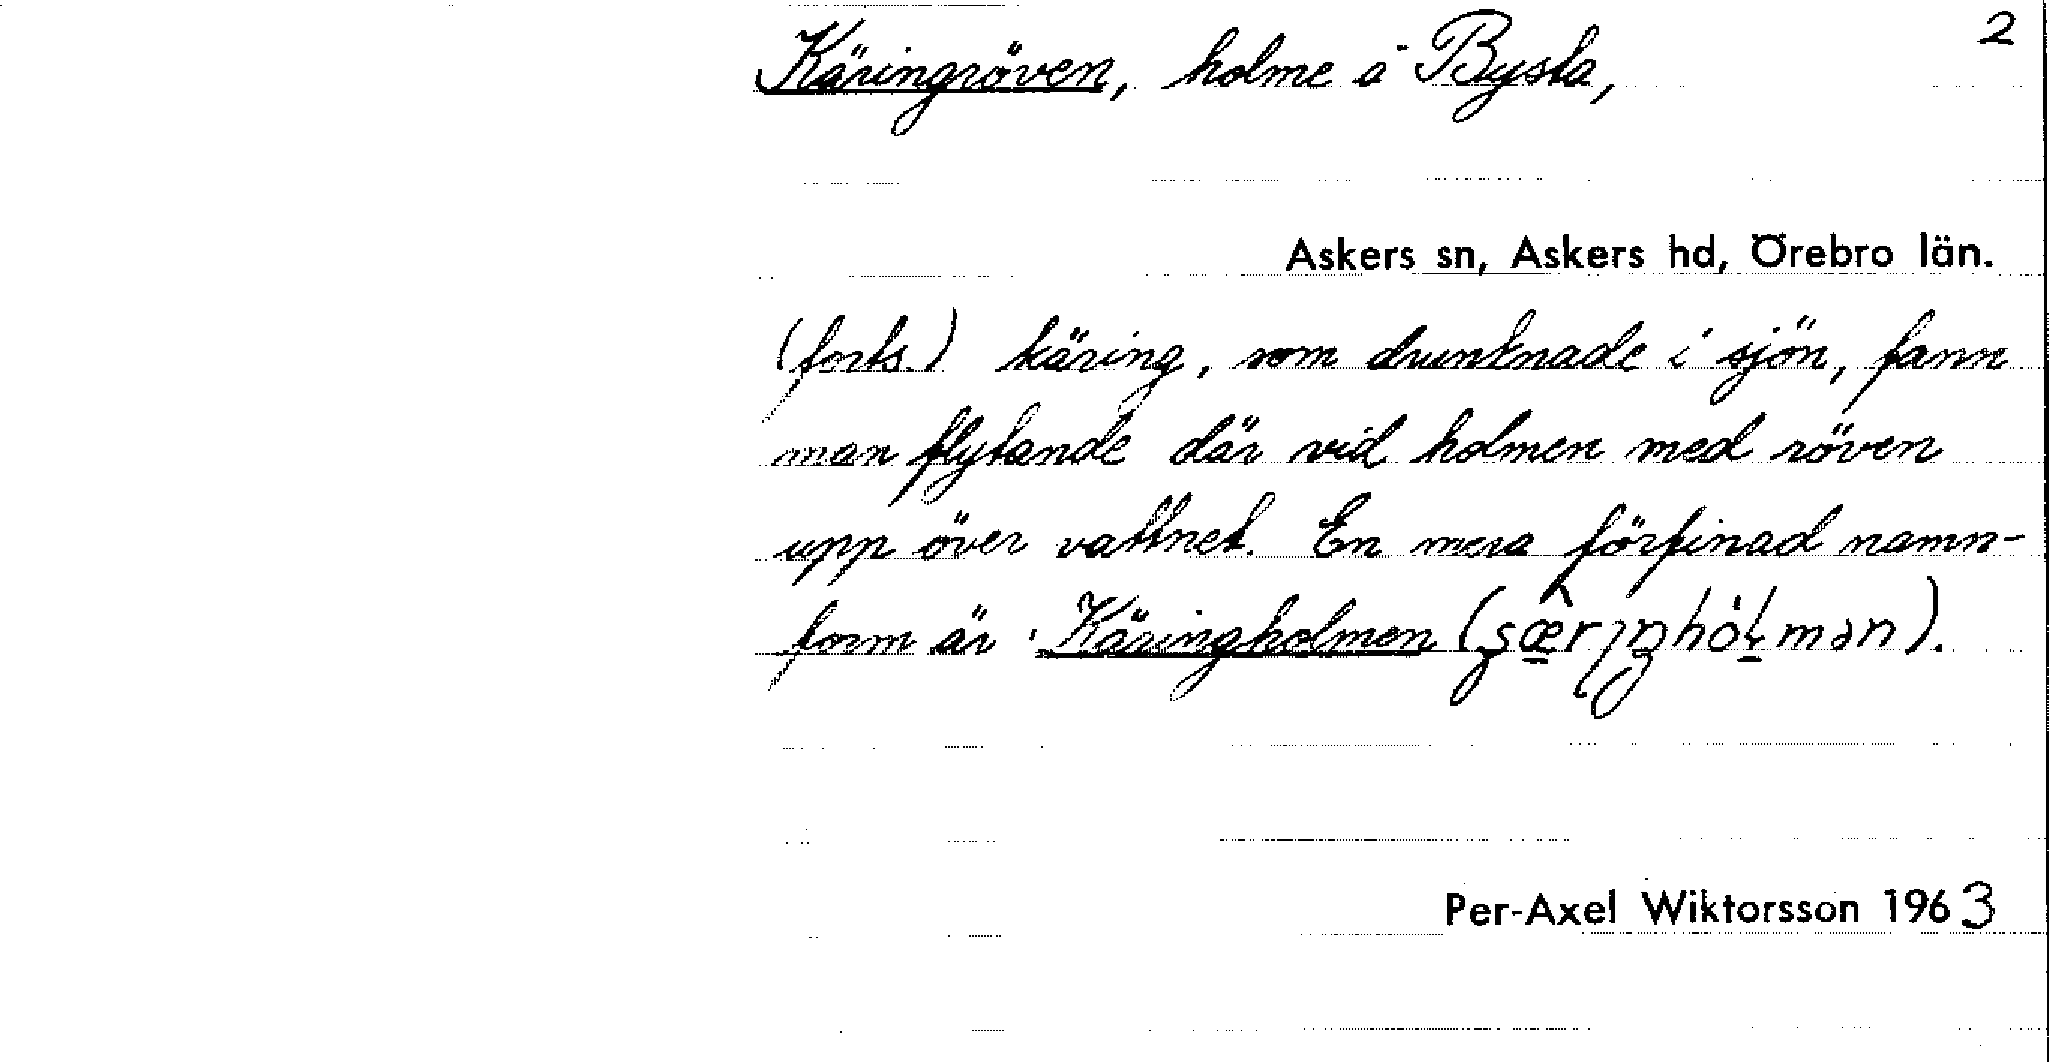 Käringröven, holme å Bysta, 2
Askers sn, Askers hd, Örebro län.
(forts.) käring, som drunknade i sjön, fann
man flytande där vid holmen med röven
upp över vattnet. En mera förfinad namn-
form är Käringholmen
Per-Axel Wiktorsson 1963